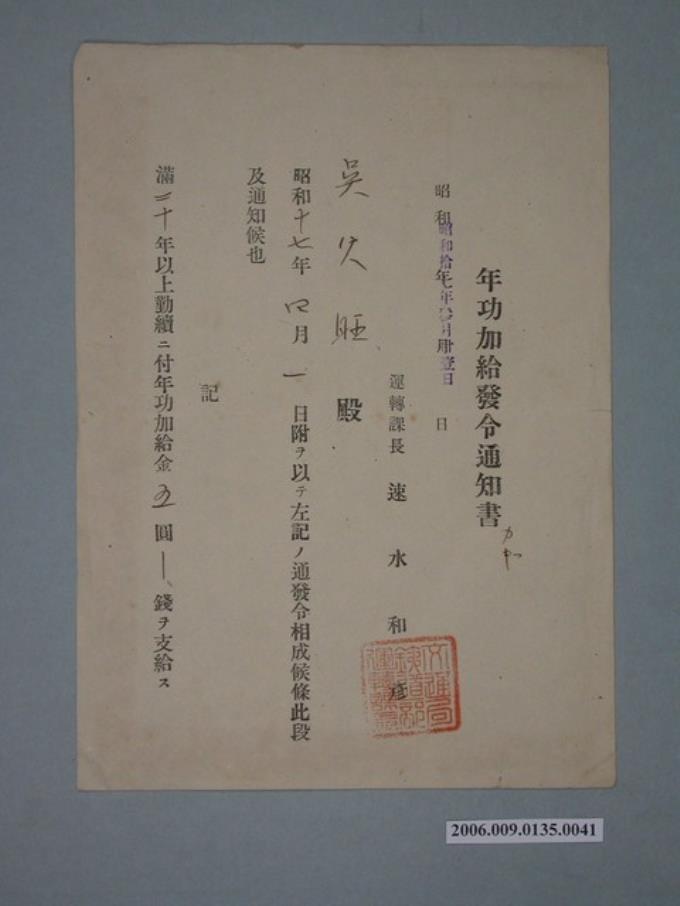 年功加給發令通知書
昭和 年 日
昭和拾七年 月 壹日
運轉課長 速水和彥
吳火旺殿
昭和十七年四月一日附ヲ以テ左記ノ通發令相成候條此段
及通知候也
記
滿二十年以上勤續ニ付年功加給金五圓―錢ヲ支給ス
2006.009.0135.0041